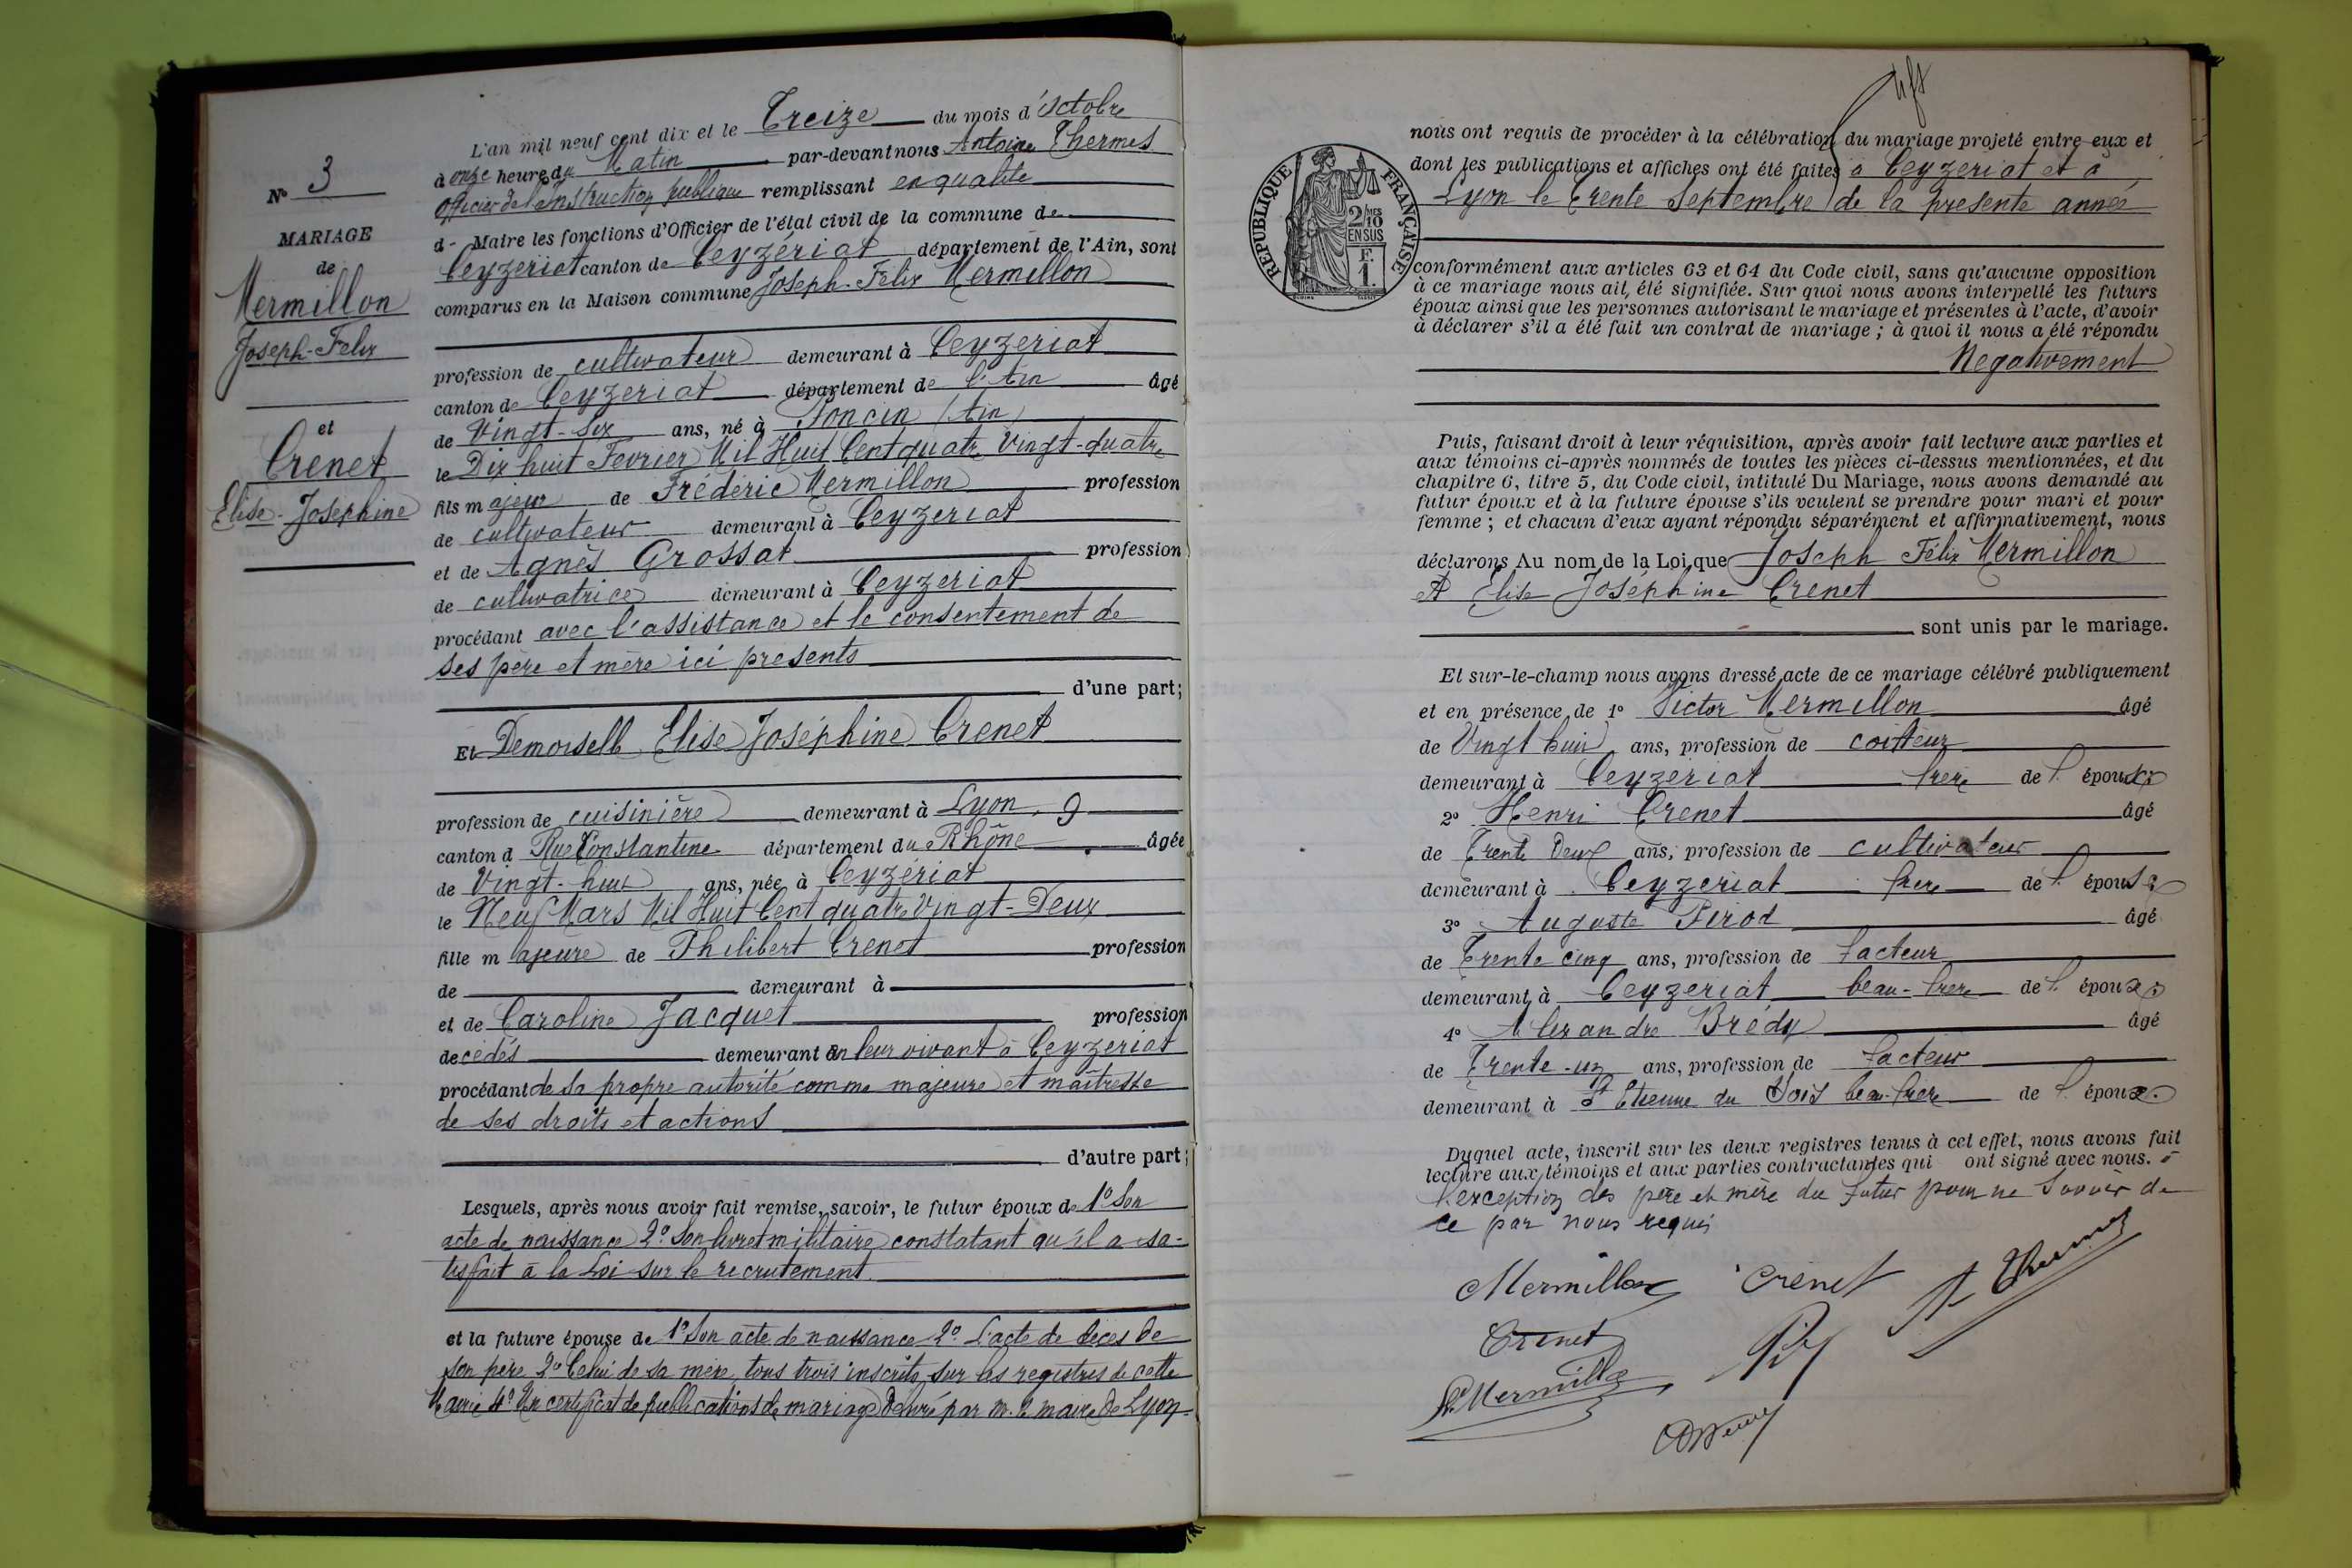 N° 3
MARIAGE
de
Mermillon
Joseph-Felix
et
Crenet
Elise-Josephine
L'an mil neuf cent dix et le Treize du mois d'octobre
à onze heure du Matin par-devant nous Antoine Thermes
officier de l'Instruction publique remplissant en qualité
d- Maire les fonctions d'Officier de l'état civil de la commune de
Ceyzeriat canton de Ceyzériat département de l'Ain, sont
comparus en la Maison commune Joseph-Felix Mermillon
profession de cultivateur demeurant à Ceyzeriat
canton de Ceyzeriat département de l'Ain âgé
de Vingt-Six ans, né à Poncin (Ain)
le Dix huit Fevrier Mil Huit Cent quatre Vingt-quatre
fils majeur de Frédéric Mermillon profession
de cultivateur demeurant à Ceyzeriat
et de Agnès Grossat profession
de cultivatrice demeurant à Ceyzeriat
procédant avec l'assistance et le consentement de
ses père et mère ici presents
d'une part;
Et Demoiselle Elise Joséphine Crenet
profession de cuisinière demeurant à Lyon, 9
canton d Rue Constantine département du Rhône âgée
de Vingt-huit ans, née à Ceyzériat
le Neuf Mars Mil Huit Cent quatre Vingt-Deux
fille majeure de Philibert Crenet profession
de demeurant à
et de Caroline Jacquet profession
decédés demeurant en leur vivant à Ceyzeriat
procédant de sa propre autorité comme majeure et maîtresse
de ses droits et actions
d'autre part;
Lesquels, après nous avoir fait remise, savoir, le futur époux de 1° Son
acte de naissance 2° Son livret militaire constatant qu'il a sa-
tisfait à la Loi sur le recrutement
et la future épouse de 1° Son acte de naissance 2° L'acte de déces de
son père 3° Celui de sa mère, tous trois inscrits sur les registres de cette
Mairie 4° Un certificat de publications de mariage délivré par M. le maire de Lyon-
REPUBLIQUE FRANÇAISE
2 MES
10
EN SUS
F.
1.
nous ont requis de procéder à la célébration du mariage projeté entre eux et
dont les publications et affiches ont été faites à Ceyzeriat et à
Lyon le Trente Septembre de la presente année
conformément aux articles 63 et 64 du Code civil, sans qu'aucune opposition
à ce mariage nous ait été signifiée. Sur quoi nous avons interpellé les futurs
époux ainsi que les personnes autorisant le mariage et présentes à l'acte, d'avoir
à déclarer s'il a été fait un contrat de mariage ; à quoi il nous a été répondu
Negativement
Puis, faisant droit à leur réquisition, après avoir fait lecture aux parties et
aux témoins ci-après nommés de toutes les pièces ci-dessus mentionnées, et du
chapitre 6, titre 5, du Code civil, intitulé Du Mariage, nous avons demandé au
futur époux et à la future épouse s'ils veulent se prendre pour mari et pour
femme ; et chacun d'eux ayant répondu séparément et affirmativement, nous
déclarons Au nom de la Loi, que Joseph Félix Mermillon
et Elise Joséphine Crenet
sont unis par le mariage.
Et sur-le-champ nous avons dressé acte de ce mariage célébré publiquement
et en présence de 1° Victor Mermillon âgé
de Vingt huit ans, profession de coiffeur
demeurant à Ceyzériat frere de l' époux
2° Henri Crenet âgé
de Trente Deux ans, profession de cultivateur
demeurant à Ceyzeriat frere de l' épouse
3° Auguste Pirod âgé
de Trente cinq ans, profession de facteur
demeurant à Ceyzeriat beau-frere de l' époux
4° Alexandre Brédy âgé
de Trente-un ans, profession de facteur
demeurant à St Etienne du Bois beau-frere de l' époux.
Duquel acte, inscrit sur les deux registres tenus à cet effet, nous avons fait
lecture aux témoins et aux parties contractantes qui ont signé avec nous. à
l'exception des père et mère du futur pour ne savoir de
ce par nous requis
Mermillon Crenet A Thermes
Crenet
V. Mermillon